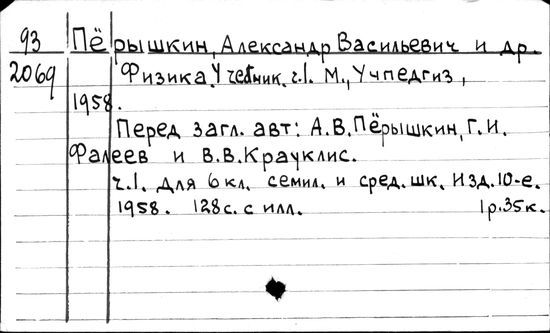 93 Пёрышкин, Александр Васильевич и др.
2069 Физика. Учебник. ч.1. М., Учпедгиз,
1958.
Перед загл. авт: А.В.Пёрышкин, Г.И.
Фалеев и В.В.Крауклис.
ч.1. Для 6 кл. семил. и сред. шк. Изд.10-е.
1958. 128с. с илл. 1р.35к.